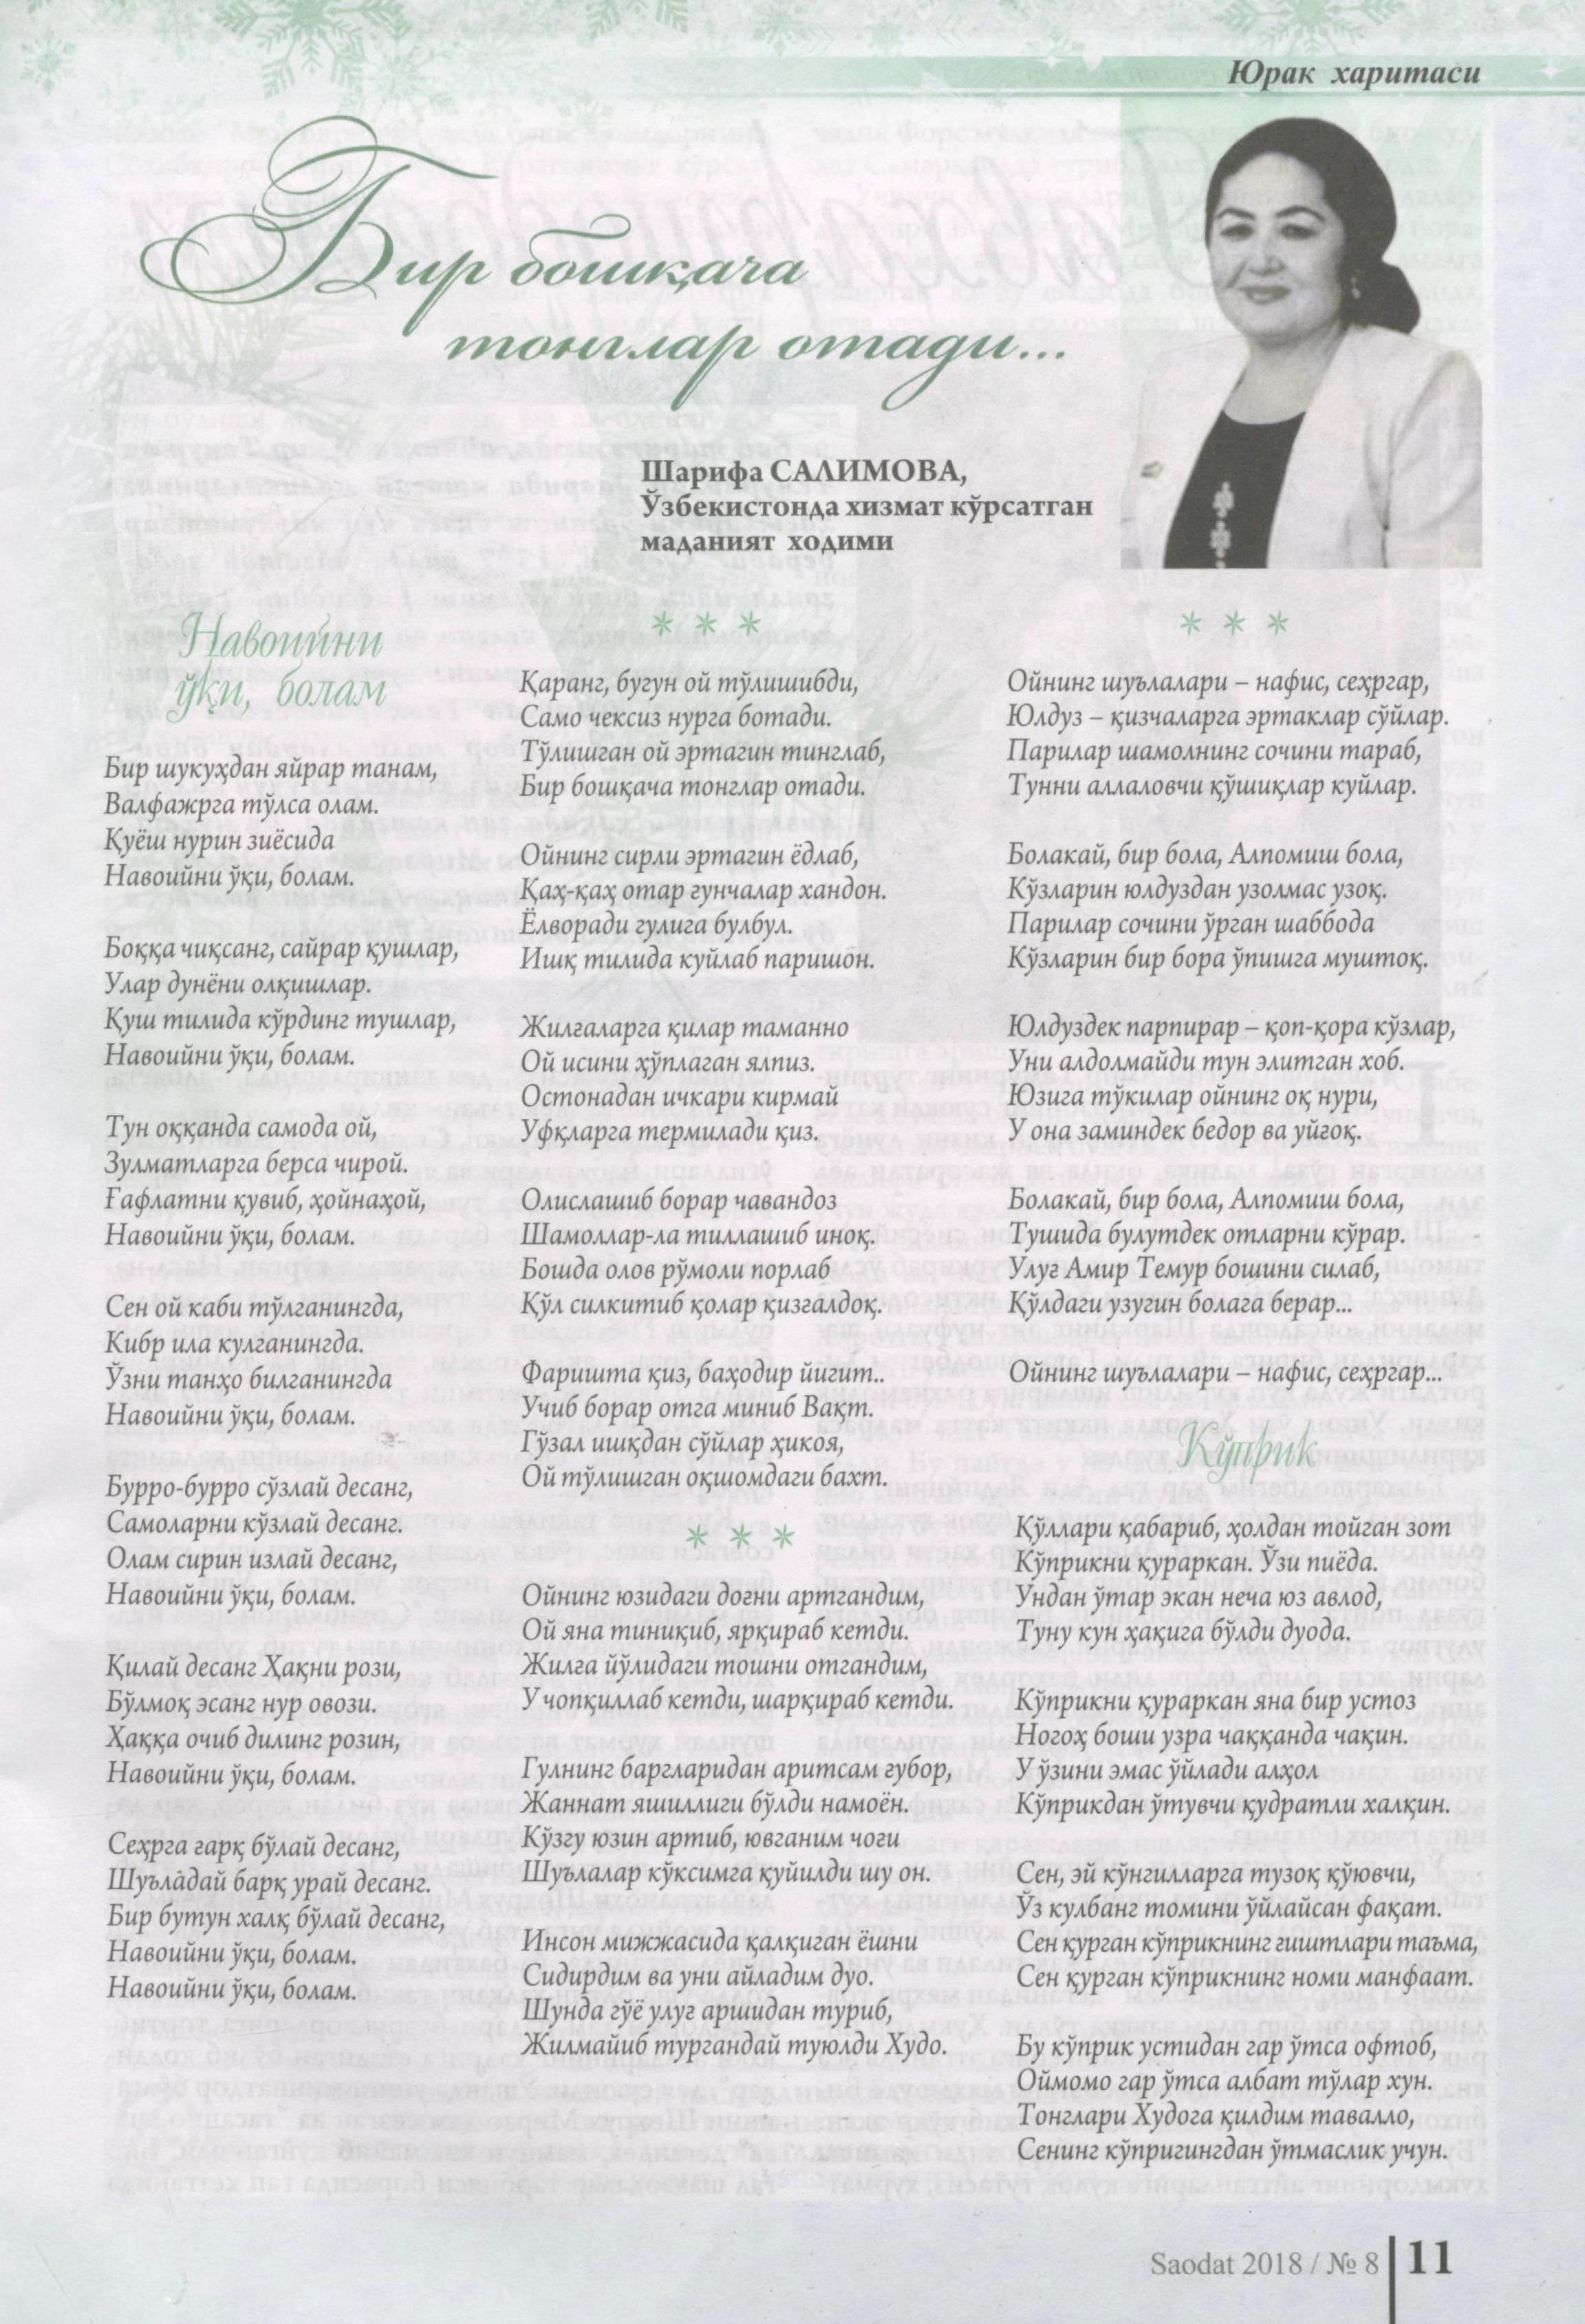 Юрак харитаси
Бир бошқача
тонглар отади...
Шарифа САЛИМОВА,
Ўзбекистонда хизмат кўрсатган
маданият ходими
Навоийни
ўқи, болам
Бир шукуҳдан яйрар танам,
Валфажрга тўлса олам.
Қуёш нурин зиёсида
Навоийни ўқи, болам.
Боққа чиқсанг, сайрар қушлар,
Улар дунёни олқишлар.
Қуш тилида кўрдинг тушлар,
Навоийни ўқи, болам.
Тун оққанда самода ой,
Зулматларга берса чирой.
Ғафлатни қувиб, ҳойнаҳой,
Навоийни ўқи, болам.
Сен ой каби тўлганингда,
Кибр ила кулганингда.
Ўзни танҳо билганингда
Навоийни ўқи, болам.
Бурро-бурро сўзлай десанг,
Самоларни кўзлай десанг.
Олам сирин излай десанг,
Навоийни ўқи, болам.
Қилай десанг Ҳақни рози,
Бўлмоқ эсанг нур овози.
Ҳаққа очиб дилинг розин,
Навоийни ўқи, болам.
Сеҳрга ғарқ бўлай десанг,
Шуъладай барқ урай десанг.
Бир бутун халқ бўлай десанг,
Навоийни ўқи, болам.
Навоийни ўқи, болам.
* * *
Қаранг, бугун ой тўлишибди,
Само чексиз нурга ботади.
Тўлишган ой эртагин тинглаб,
Бир бошқача тонглар отади.
Ойнинг сирли эртагин ёдлаб,
Қаҳ-қаҳ отар ғунчалар хандон.
Ёлворади гулига булбул.
Ишқ тилида куйлаб паришон.
Жилғаларга қилар таманно
Ой исини ҳўплаган ялпиз.
Остонадан ичкари кирмай
Уфқларга термилади қиз.
Олислашиб борар чавандоз
Шамоллар-ла тиллашиб иноқ.
Бошда олов рўмоли порлаб
Қўл силкитиб қолар қизғалдоқ.
Фаришта қиз, баҳодир йигит..
Учиб борар отга миниб Вақт.
Гўзал ишқдан сўйлар ҳикоя,
Ой тўлишган оқшомдаги бахт.
* * *
Ойнинг юзидаги доғни артгандим,
Ой яна тиниқиб, ярқираб кетди.
Жилға йўлидаги тошни отгандим,
У чопқиллаб кетди, шарқираб кетди.
Гулнинг баргларидан аритсам ғубор,
Жаннат яшиллиги бўлди намоён.
Кўзгу юзин артиб, ювганим чоғи
Шуълалар кўксимга қуйилди шу он.
Инсон мижжасида қалқиган ёшни
Сидирдим ва уни айладим дуо.
Шунда гўё улуғ аршидан туриб,
Жилмайиб тургандай туюлди Худо.
* * *
Ойнинг шуълалари – нафис, сеҳргар,
Юлдуз – қизчаларга эртаклар сўйлар.
Парилар шамолнинг сочини тараб,
Тунни аллаловчи қўшиқлар куйлар.
Болакай, бир бола, Алпомиш бола,
Кўзларин юлдуздан узолмас узоқ.
Парилар сочини ўрган шаббода
Кўзларин бир бора ўпишга муштоқ.
Юлдуздек парпирар – қоп-қора кўзлар,
Уни алдолмайди тун элитган хоб.
Юзига тўкилар ойнинг оқ нури,
У она заминдек бедор ва уйғоқ.
Болакай, бир бола, Алпомиш бола,
Тушида булутдек отларни кўрар.
Улуғ Амир Темур бошини силаб,
Қўлдаги узугин болага берар...
Ойнинг шуълалари – нафис, сеҳргар...
Кўприк
Қўллари қабариб, ҳолдан тойган зот
Кўприкни қураркан. Ўзи пиёда.
Ундан ўтар экан неча юз авлод,
Туну кун ҳақига бўлди дуода.
Кўприкни қураркан яна бир устоз
Ногоҳ боши узра чаққанда чақин.
У ўзини эмас ўйлади алҳол
Кўприкдан ўтувчи қудратли халқин.
Сен, эй кўнгилларга тузоқ қўювчи,
Ўз кулбанг томини ўйлайсан фақат.
Сен қурган кўприкнинг ғиштлари таъма,
Сен қурган кўприкнинг номи манфаат.
Бу кўприк устидан гар ўтса офтоб,
Оймомо гар ўтса албат тўлар хун.
Тонглари Худога қилдим тавалло,
Сенинг кўпригингдан ўтмаслик учун.
Saodat 2018 / № 8 | 11